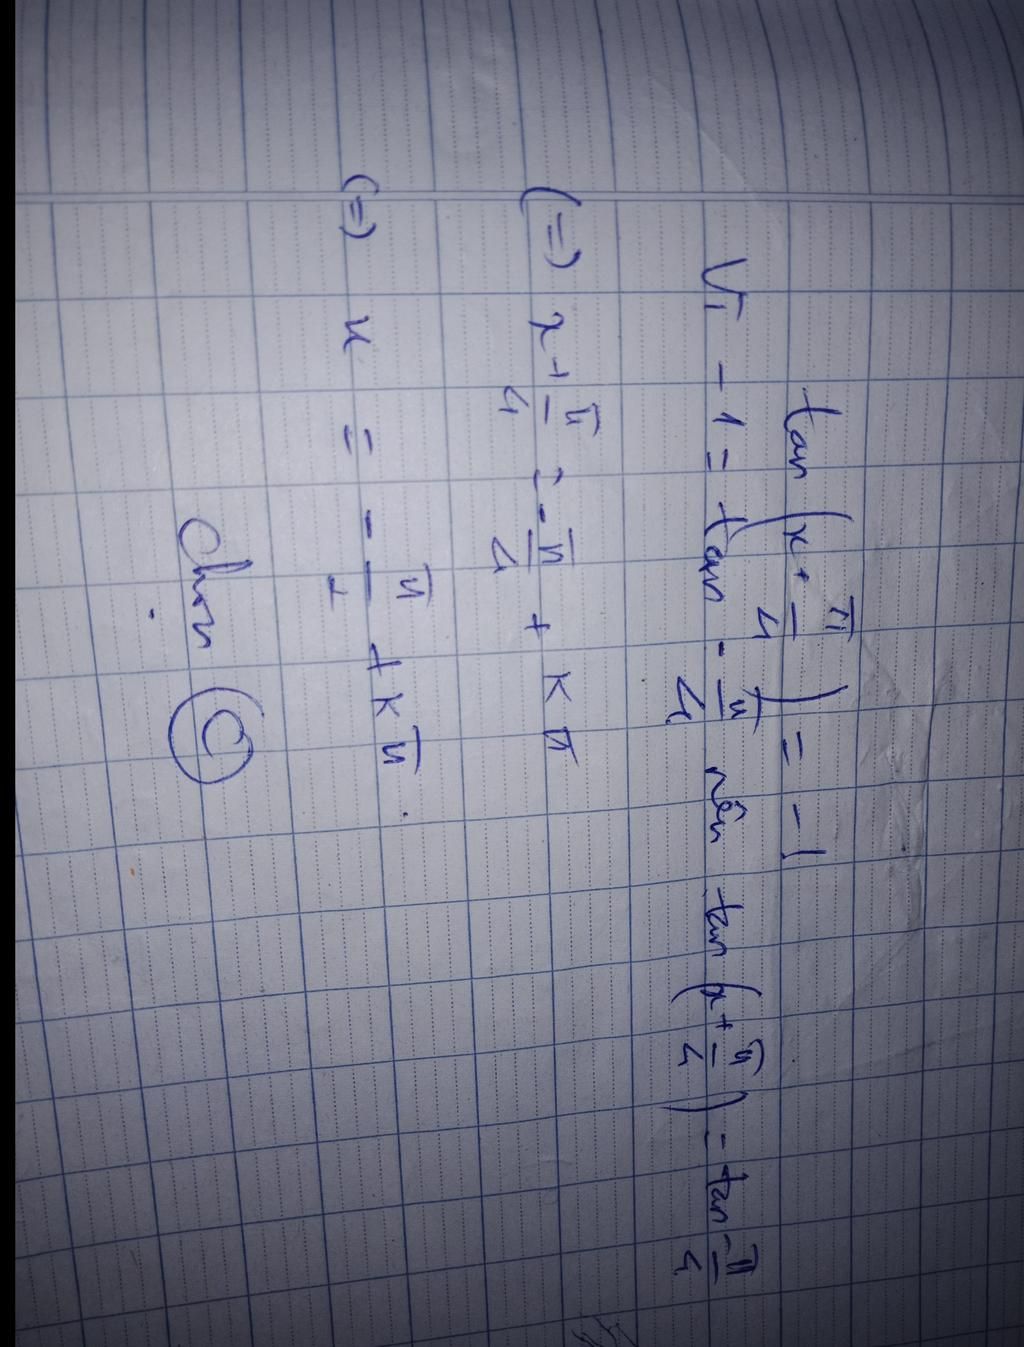 tan (x + π/4) = -1
Vì -1 = tan -π/4 nên tan (x + π/4) = tan -π/4
(=) x + π/4 = -π/4 + kπ
(=) x = -π/2 + kπ.
Chọn C